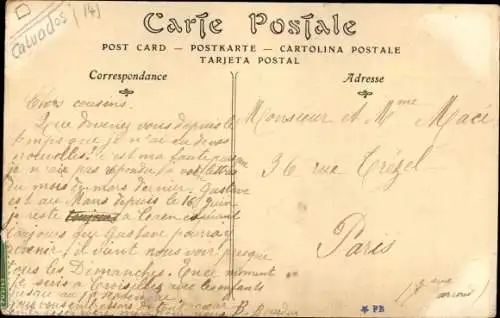 Calvados (14)
Carte Postale
POST CARD — POSTKARTE — CARTOLINA POSTALE
TARJETA POSTAL
Correspondance
Adresse
Chers cousins.
Que devenez vous depuis le
temps que je n'ai eu de vos
nouvelles! c'est ma faute puisque
je n'ai pas répondu à vos lettres
du mois de mars dernier. Gustave
est au Mans depuis le 16 juin
je reste toujours à Caen
toujours que Gustave pourra
venir, il vient nous voir presque
tous les Dimanches. En ce moment
je suis à avec les enfants
jusqu'au 1er
vous de tout cœur B.
Monsieur et Mme Macé
36 rue Trézel
Paris
(17eme arrond)
★ PB